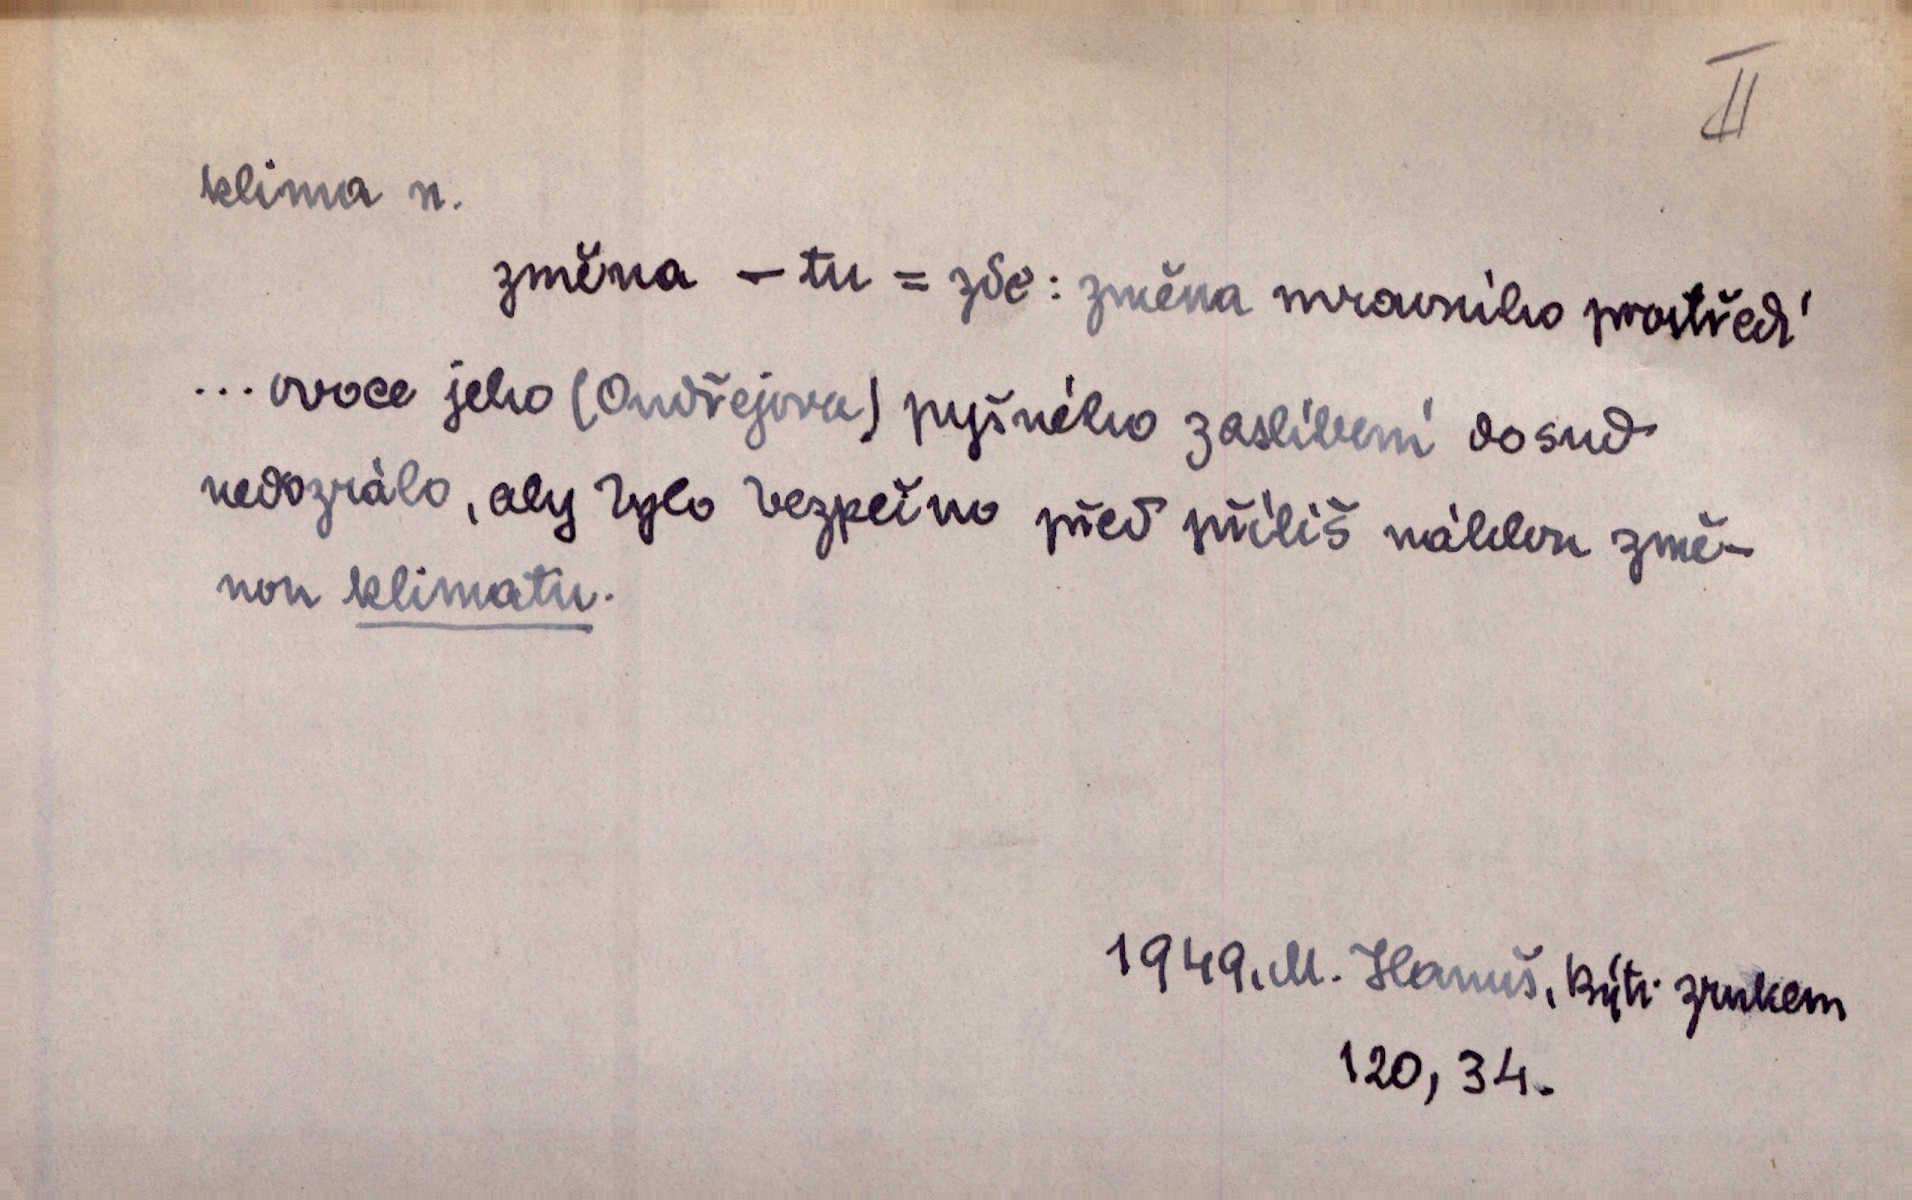 II
klima n.
změna – tu = zde: změna mravního prostředí
... ovoce jeho (Ondřejova) pyšného zaslíbení dosud
nedozrálo, aby bylo bezpečno před příliš náhlou změ-
nou klimatu.
1949, M. Hanuš, Býti zrukem
120, 34.